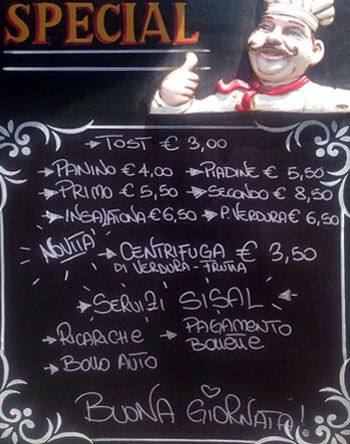 SPECIAL
TOST € 3,00
PANINO € 4,00 PIADINE € 5,50
PRIMO € 5,50 SECONDO € 8,50
INSALATONA € 6,50 P. VERDURA € 6,50
NOVITA CENTRIFUGA € 3,50
DI VERDURA - FRUTTA
SERVIZI SISAL
RICARICHE PAGAMENTO
BOLLETTE
BOLLO AUTO
BUONA GIORNATA!